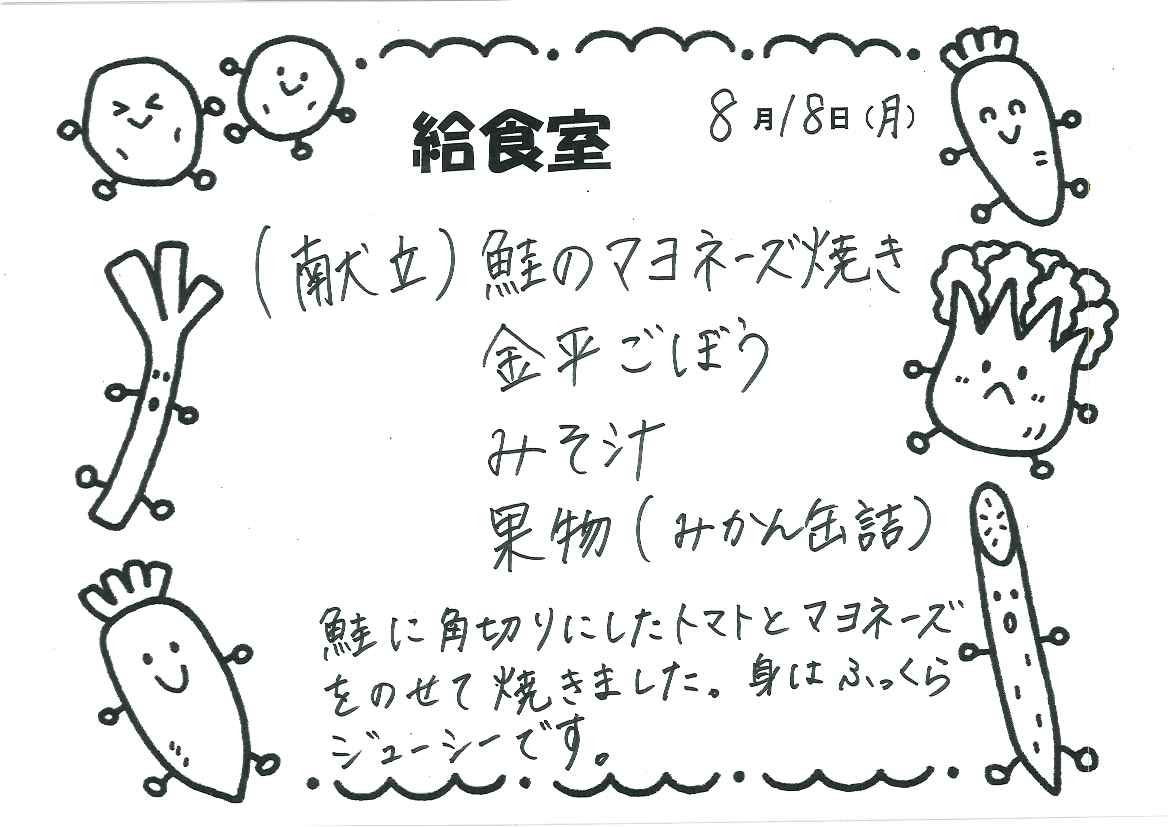 給食室
8月18日(月)
(献立)鮭のマヨネーズ焼き
金平ごぼう
みそ汁
果物(みかん缶詰)
鮭に角切りにしたトマトとマヨネーズ
をのせて焼きました。身はふっくら
ジューシーです。